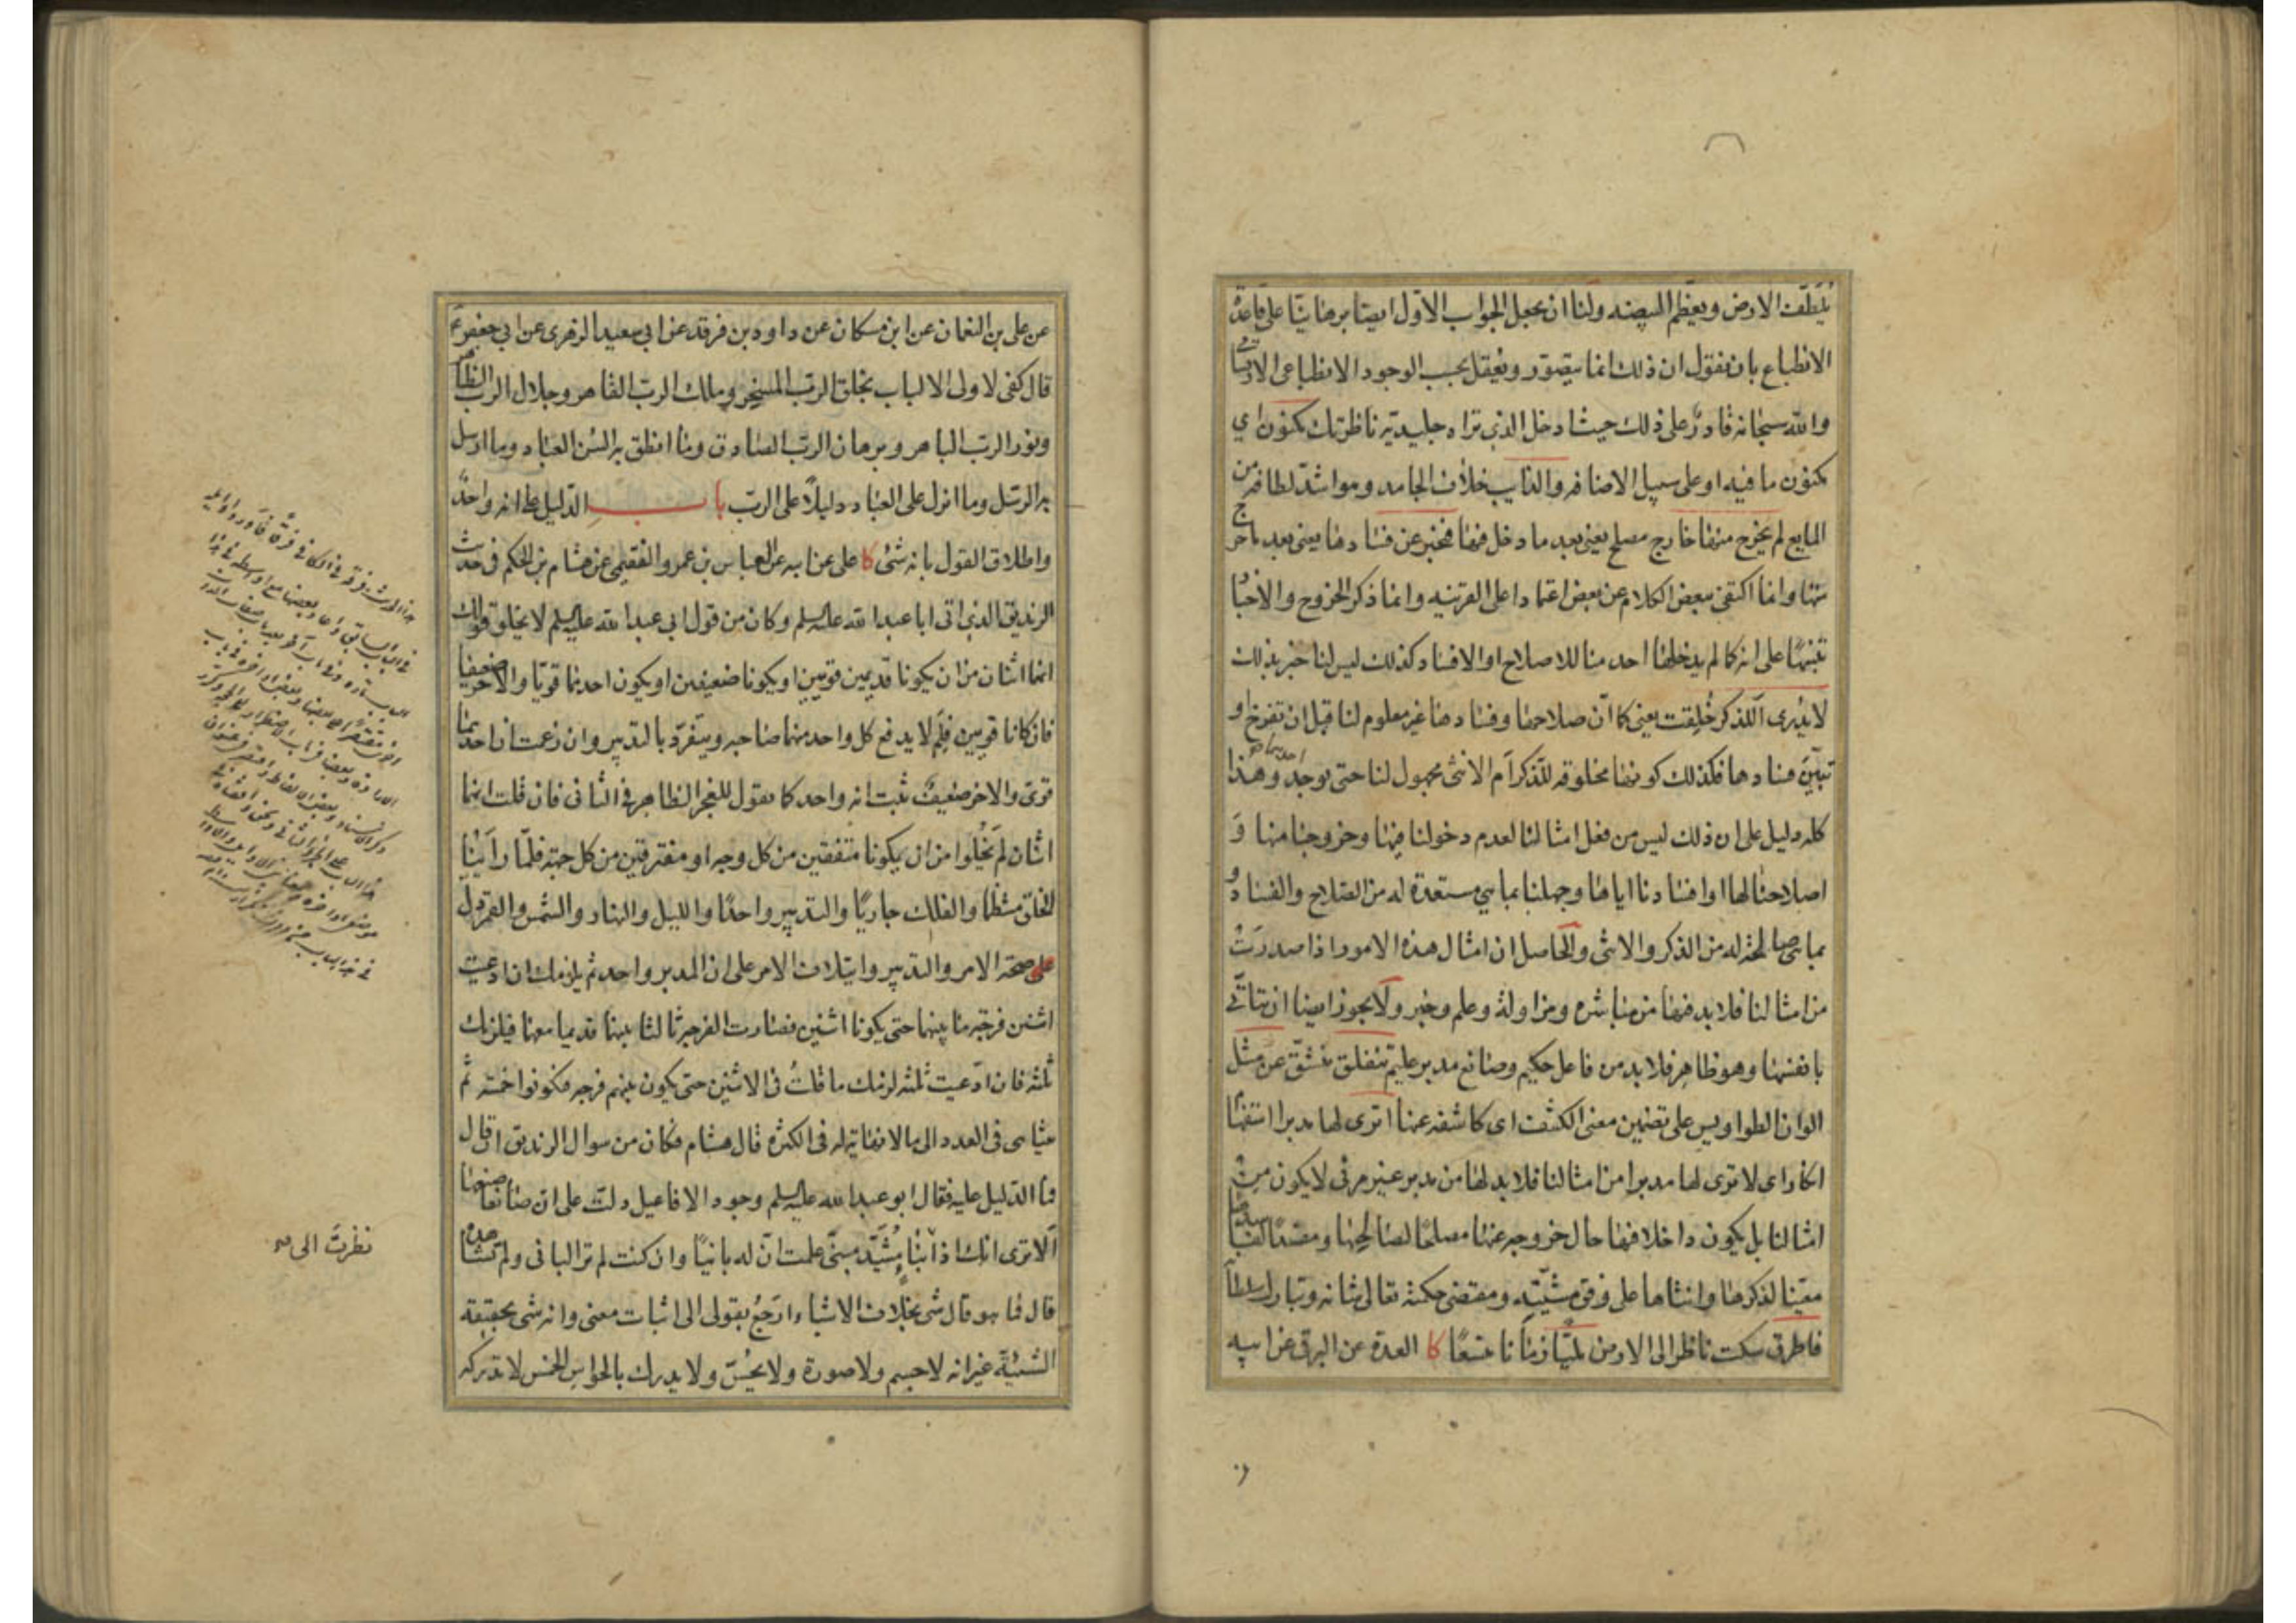 يلطف الارض ويعظم البيضه ولنا ان نجعل الجواب الاول ايضا برهانيا على قاعدة
الانطباع بان نقول ان ذلك انما يتصور ويعقل بحسب الوجود الانطباعى
والله سبحانه قادر على ذلك حيث ادخل الذى تراه جليديه ناظرتك مكنون اي
مكنون ما فيه او على سبيل الاضافه والذايب خلاف الجامد وهو اشد لطافه من
المايع لم يخرج منها خارج مصلح يعنى بعد ما دخل فيها فخبر عن فسادها يعنى بعد ما خرج
منها وانما اكتفى ببعض الكلام عن بعض اعتمادا على القرينه وانما ذكر الخروج والاخبار
تنبيها على انه كما لم يدخلها احد منا للاصلاح او الافساد كذلك ليس لنا خبر بذلك
لا يدرى اللذكر خُلِقت يعنى كما انّ صلاحها وفسادها غير معلوم لنا قبل ان تفرخ او
تبيّن فسادها فكذلك كونها مخلوقه للذكر ام الانثى مجهول لنا حتى يوجد احدهما وهذا
كله دليل على ان ذلك ليس من فعل امثالنا لعدم دخولنا فيها وخروجنا منها وَ
اصلاحنا لها او افسادنا اياها وجهلنا بما هى مستعدة له من الصلاح والفساد و
بما هى صالحة له من الذكر والانثى والحاصل ان امثال هذه الامور اذا صدرتْ
من امثالنا فلا بد فيها من مباشره ومزاولة وعلم وخبر ولا يجوز ايضا ان يتاتى
بانفسها وهو ظاهر فلا بد من فاعل حكيم وصانع مدبر عليم تنفلق تنشق عن مثل
الوان الطواويس على تضمين معنى الكشف اى كاشفه عنها اترى لها مدبرا استفها
انكار اى لا ترى لها مدبرا من امثالنا فلا بد لها من مدبر غير مرئى لا يكون من
امثالنا بل يكون داخلا فيها حال خروجه عنها مصلحا لصالحها ومفسدا لفاسدها
معينا لذكرها وانثاها على وفق مشيّته ومقتضى حكمته تعالى شانه وتبارك سلطانه
فاطرق سكت ناظرا الى الارض مليّا زمانا متسعًا كا العدة عن البرقى عن ابيه
عن على بن النعمان عن ابن مسكان عن داود بن فرقد عن ابى سعيد الزهرى عن ابى جعفر ع
قال كفى لاولى الالباب بخلق الرب المسخر وملك الرب القاهر وجلال الرب الظاهر
ونور الرب الباهر وبرهان الرب الصادق وما انطق به السن العباد وما ارسل
به الرسل وما انزل على العباد دليلًا على الرب باب الدّليل على انه واحد
واطلاق القول بانه شئ كا على عن ابيه عن العباس بن عمرو الفقيمى عن هشام بن الحكم فى حديث
الزنديق الذى اتى ابا عبد الله عليه السلم وكان من قول ابى عبد الله عليه السلم لا يخلو قولك
انهما اثنان من ان يكونا قديمين قويين او يكونا ضعيفين او يكون احدهما قويّا والاخر ضعيفا
فان كانا قويين فلِمَ لا يدفع كل واحد منهما صاحبه ويتفرّد بالتدبير وان زعمت ان احدهما
قوىّ والاخر ضعيف ثبت انه واحد كما نقول للعجز الظاهر فى الثانى فان قلت انهما
اثنان لم تخلوا من ان يكونا متفقين من كل وجه او مفترقين من كل جهة فلمّا رأينا
الخلق منتظما والفلك جاريًا والتدبير واحدًا والليل والنهار والشمس والقمر دل
على صحة الامر والتدبير وايتلاف الامر على ان المدبر واحد ثم يلزمك ان ادعيت
اثنين فرجة ما بينهما حتى يكونا اثنين فصارت الفرجة ثالثا بينهما قديما معهما فيلزمك
ثلثة فان ادّعيت ثلثة لزمك ما قلتُ فى الاثنين حتى يكون بينهم فرجه فيكونوا خمسة ثم
يتناهى فى العدد الى ما لا نهاية له فى الكثرة قال هشام فكان من سوال الزنديق ان قال
فما الدّليل عليه فقال ابو عبد الله عليه السلم وجود الافاعيل دلت على ان صانعا صنعها
اَلا ترى انك اذا نظرت الى بناء مُشَيَّد مبنىّ علمت انّ له بانيًا وان كنت لم تر البانى ولم تشاهده
قال فما هو قال شئ بخلاف الاشياء ارجع بقولى الى اثبات معنى وانه شئ بحقيقة
الشيئيّة غير انه لا جسم ولا صورة ولا يحُسّ ولا يدرك بالحواس الخمس لا تدركه
نظرتَ الى